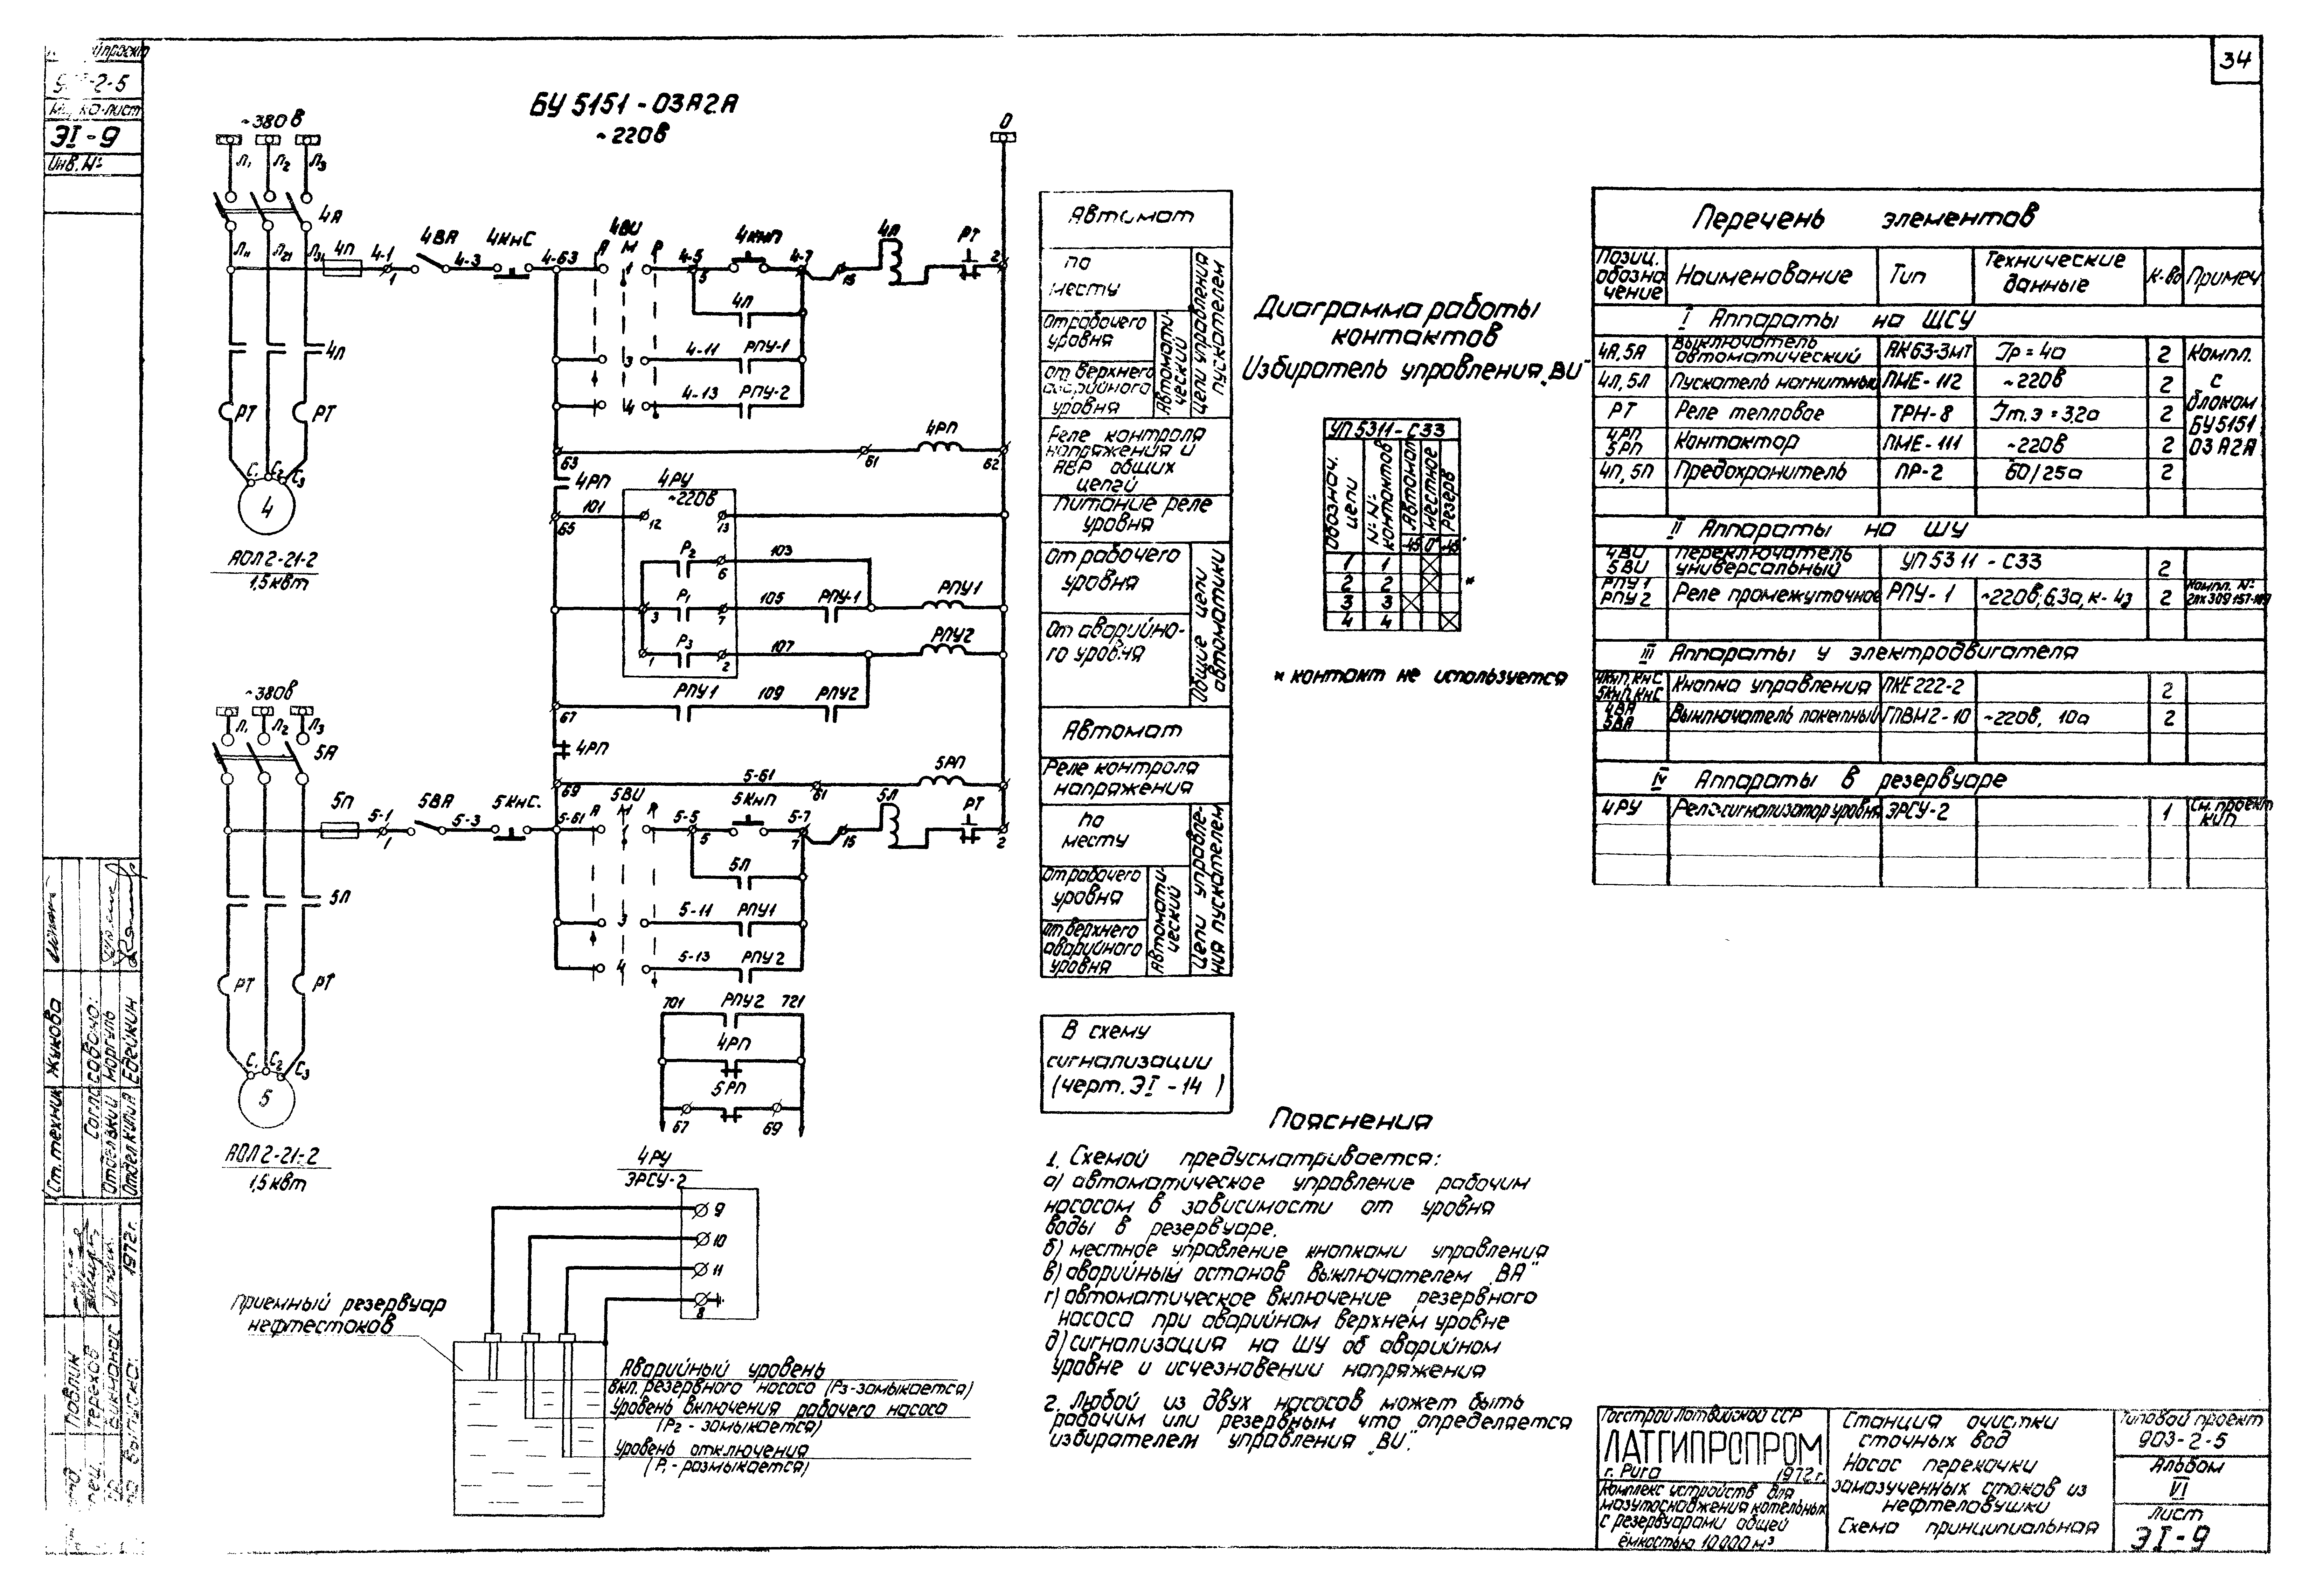 34
9 -2-5
ЭI-9
Инв. №
БУ 5151-03А2А
~220в
~380в
Л₁ Л₂ Л₃
4А
Л₁₁ Л₂₁ Л₃₁
4П
4-1
1
4ВА
4-3
4КнС
4-63
4ВИ
А М Р
1
4-5
5
4КнП
4-7
15
4Л
РТ
2
0
4Л
3
4-11
РПУ-1
4
4-13
РПУ-2
4Л
РТ РТ
С₁ С₂ С₃
4
АОЛ2-21-2
1,5квт
63
61
4РП
62
4РП
4РУ
~220в
101
65
12
13
Р₂
6
103
3
Р₁
7
105
РПУ-1
РПУ1
1
Р₃
2
107
РПУ2
67
РПУ1
109
РПУ2
4РП
~380в
Л₁ Л₂ Л₃
5А
69
5-61
61
5РП
5П
5-1
1
5ВА
5-3
5КнС.
5-61
5ВИ
А М Р
1
5-5
5
5КнП
5-7
7
15
5Л
РТ
2
5Л
5Л
3
5-11
РПУ1
4
5-13
РПУ2
РТ РТ
С₁ С₂ С₃
5
АОЛ2-21-2
1,5квт
701 РПУ2 721
4РП
5РП
67 69
4РУ
ЭРСУ-2
9
10
11
8
Приемный резервуар
нефтестоков
Аварийный уровень
вкл. резервного насоса (Р₃-замыкается)
Уровень включения рабочего насоса
(Р₂ - замыкается)
Уровень отключения
(Р₁ - размыкается)
Автомат
по
месту
От рабочего
уровня
от верхнего
аварийного
уровня
Автомати-
ческий
Цепи управления
пускателем
Реле контроля
напряжения и
АВР общих
цепей
Питание реле
уровня
От рабочего
уровня
От аварийно-
го уровня
Общие цепи
автоматики
Автомат
Реле контроля
напряжения
По
месту
От рабочего
уровня
От верхнего
аварийного
уровня
Автомати-
ческий
Цепи управле-
ния пускателем
В схему
сигнализации
(черт. ЭI-14)
Диаграмма работы
контактов
Избиратель управления „ВИ"
УП5311-С33
Обознач.
цепи
№№
контактов
Автомат
Местное
Резерв
45 0 45
1 1
2 2 *
3 3
4 4
* контакт не используется
Перечень элементов
Позиц. обозна чение Наименование Тип Технические данные К-во Примеч
I Аппараты на ЩСУ
4А,5А Выключатель автоматический АК63-3мт Jр=4а 2 Компл.
4Л,5Л Пускатель магнитный ПМЕ-112 ~220в 2 с
РТ Реле тепловое ТРН-8 Jт.э=3,2а 2 блоком
4РП 5РП Контактор ПМЕ-111 ~220в 2 БУ5151
4П,5П Предохранитель ПР-2 60/25а 2 03А2А
II Аппараты на ШУ
4ВИ 5ВИ Переключатель универсальный УП5311-С33 2
РПУ1 РПУ2 Реле промежуточное РПУ-1 ~220в,6.3а,к-4з 2 Компл. №
III Аппараты у электродвигателя
4КнП,КнС 5КнП,КнС Кнопка управления ПКЕ222-2 2
4ВА 5ВА Выключатель пакетный ГПВМ2-10 ~220в, 10а 2
IV Аппараты в резервуаре
4РУ Реле-сигнализатор уровня ЭРСУ-2 1 См. проект КИП
Пояснения
1. Схемой предусматривается:
а) автоматическое управление рабочим
насосом в зависимости от уровня
воды в резервуаре.
б) местное управление кнопками управления
в) аварийный останов выключателем „ВА"
г) автоматическое включение резервного
насоса при аварийном верхнем уровне
д) сигнализация на ШУ об аварийном
уровне и исчезновении напряжения
2. Любой из двух насосов может быть
рабочим или резервным что определяется
избирателем управления „ВИ".
Госстрой Латвийской ССР
ЛАТГИПРОПРОМ
г. Рига 1972г.
Комплекс устройств для
мазутоснабжения котельных
с резервуарами общей
ёмкостью 10000м³
Станция очистки
сточных вод
Насос перекачки
замазученных стоков из
нефтеловушки
Схема принципиальная
Типовой проект
903-2-5
Альбом
VI
Лист
ЭI-9
Ст.техник Жукова
Согласовано:
Моргуль
Отдел КИПиА Едейкин
Павлин
Терехов
1972г.